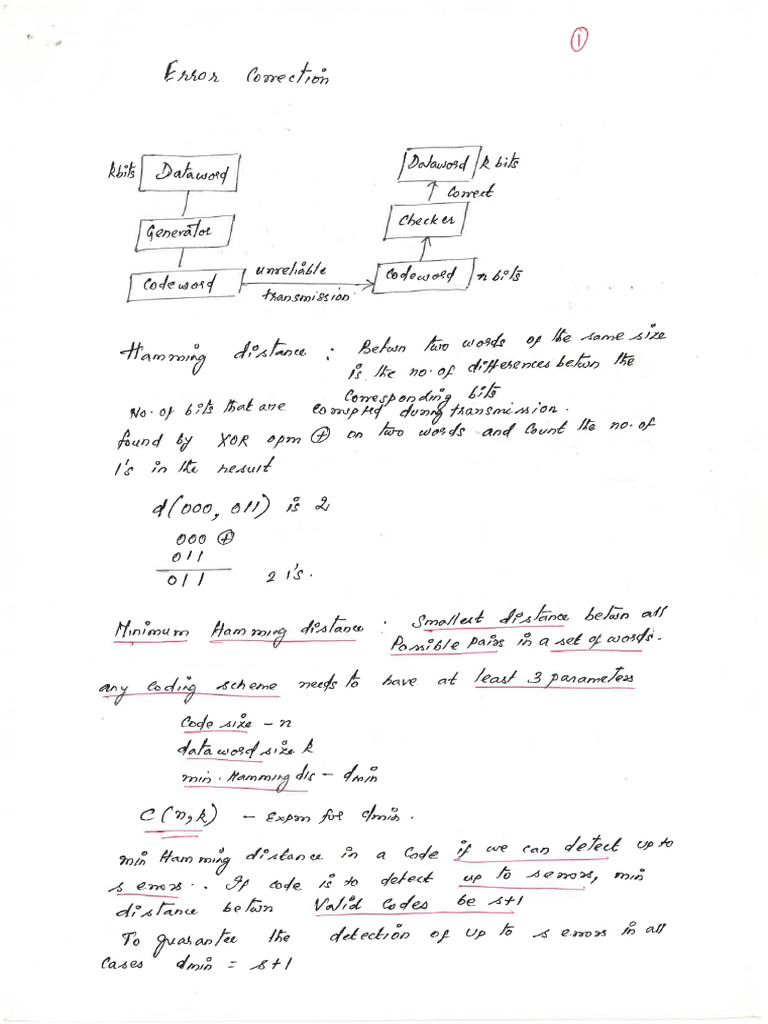 ①
Error Correction
kbits Dataword
Dataword k bits
Correct
Generator
Checker
Codeword
unreliable
transmission
Codeword n bits
Hamming distance : Betwn two words of the same size
is the no. of differences betwn the
corresponding bits
No. of bits that are corrupted during transmission.
found by XOR opm ⊕ on two words and count the no. of
1's in the result
d(000, 011) is 2
000 ⊕
011
011 2 1's.
Minimum Hamming distance : Smallest distance betwn all
Possible pairs in a set of words.
any coding scheme needs to have at least 3 parameters
Code size - n
dataword size k
min. Hamming dis - dmin
C(n,k) - Expm for dmin.
min Hamming distance in a code if we can detect up to
s errors. If code is to detect up to s errors, min
distance betwn Valid Codes be s+1
To guarantee the detection of up to s errors in all
cases dmin = s+1